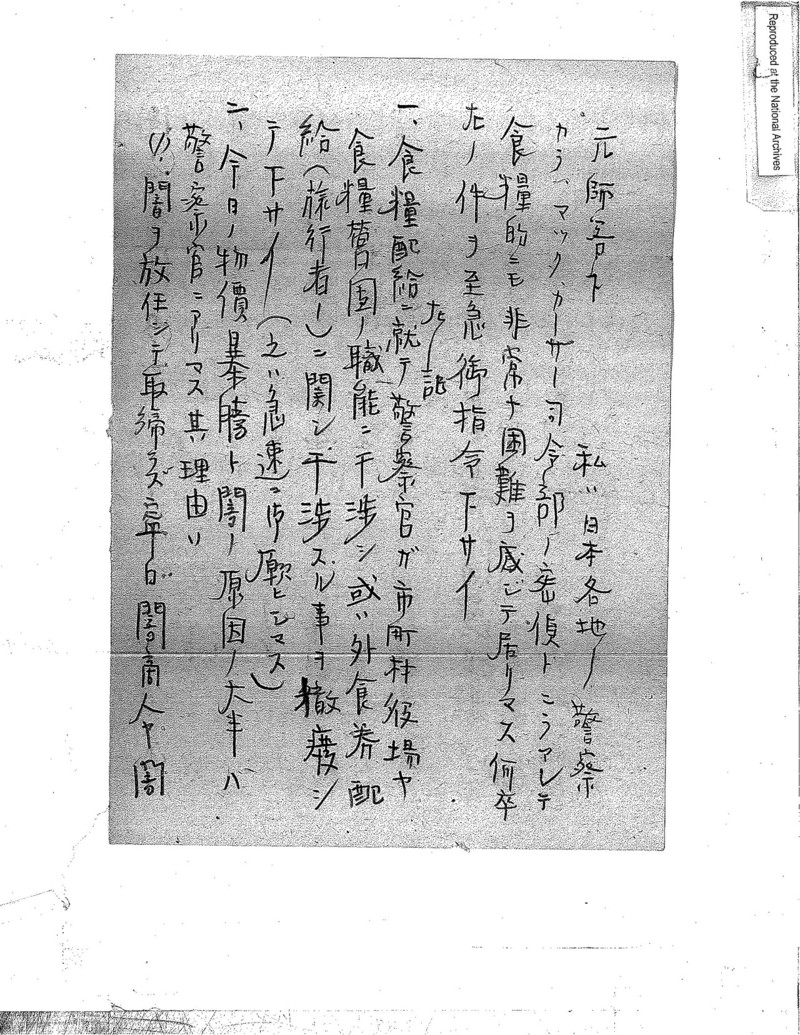 元帥閣下
私ハ日本各地ノ警察
カラ、マックカーサー司令部ノ密偵トニラマレテ
食糧的ニモ非常ナ困難ヲ感ジテ居リマス何卒
左ノ件ヲ至急御指令下サイ
左ノ記
一、食糧配給ニ就テ警察官ガ市町村役場ヤ
食糧営団ノ職能ニ干渉シ或ハ外食券配
給(旅行者ノ)ニ関シ干渉スル事ヲ撤廃シ
テ下サイ(之ハ急速ニ御願ヒシマス)
二、今日ノ物價暴騰ト闇ノ原因ノ大半ハ
警察官ニアリマス其理由ハ
(1)、闇ヲ放任シテ取締ラズ寧ロ闇商人ヤ闇
Reproduced at the National Archives